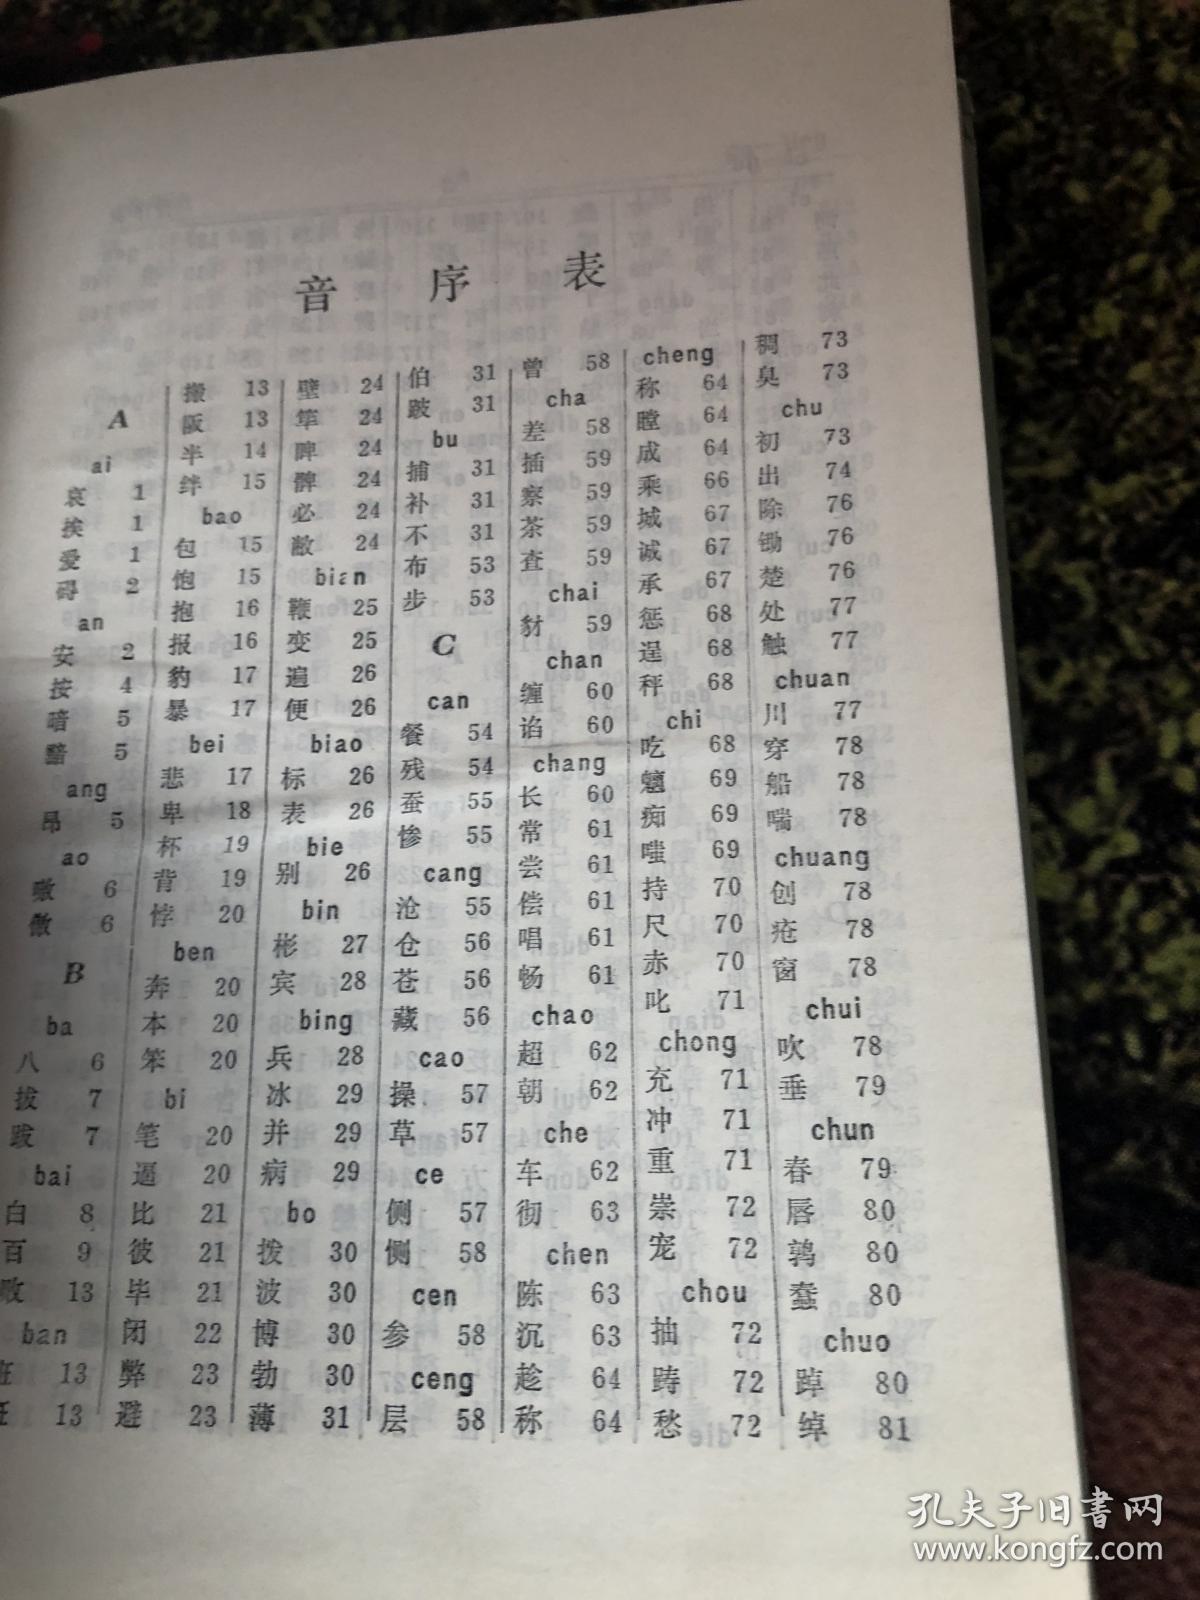 音序表
A
ai
哀 1
挨 1
爱 1
碍 2
an
安 2
按 4
暗 5
黯 5
ang
昂 5
ao
嗷 6
傲 6
B
ba
八 6
拔 7
跋 7
bai
白 8
百 9
败 13
ban
班 13
13
搬 13
阪 13
半 14
绊 15
bao
包 15
饱 15
抱 16
报 16
豹 17
暴 17
bei
悲 17
卑 18
杯 19
背 19
悖 20
ben
奔 20
本 20
笨 20
bi
笔 20
逼 20
比 21
彼 21
毕 21
闭 22
弊 23
避 23
壁 24
筚 24
睥 24
髀 24
必 24
敝 24
bian
鞭 25
变 25
遍 26
便 26
biao
标 26
表 26
bie
别 26
bin
彬 27
宾 28
bing
兵 28
冰 29
并 29
病 29
bo
拨 30
波 30
博 30
勃 30
薄 31
伯 31
跛 31
bu
捕 31
补 31
不 31
布 53
步 53
C
can
餐 54
残 54
蚕 55
惨 55
cang
沧 55
仓 56
苍 56
藏 56
cao
操 57
草 57
ce
侧 57
恻 58
cen
参 58
ceng
层 58
曾 58
cha
差 58
插 59
察 59
茶 59
查 59
chai
豺 59
chan
缠 60
谄 60
chang
长 60
常 61
尝 61
偿 61
唱 61
畅 61
chao
超 62
朝 62
che
车 62
彻 63
chen
陈 63
沉 63
趁 64
称 64
cheng
称 64
瞠 64
成 64
乘 66
城 67
诚 67
承 67
惩 68
逞 68
秤 68
chi
吃 68
魑 69
痴 69
嗤 69
持 70
尺 70
赤 70
叱 71
chong
充 71
冲 71
重 71
崇 72
宠 72
chou
抽 72
踌 72
愁 72
稠 73
臭 73
chu
初 73
出 74
除 76
锄 76
楚 76
处 77
触 77
chuan
川 77
穿 78
船 78
喘 78
chuang
创 78
疮 78
窗 78
chui
吹 78
垂 79
chun
春 79
唇 80
鹑 80
蠢 80
chuo
踔 80
绰 81
孔夫子旧书网
www.kongfz.com